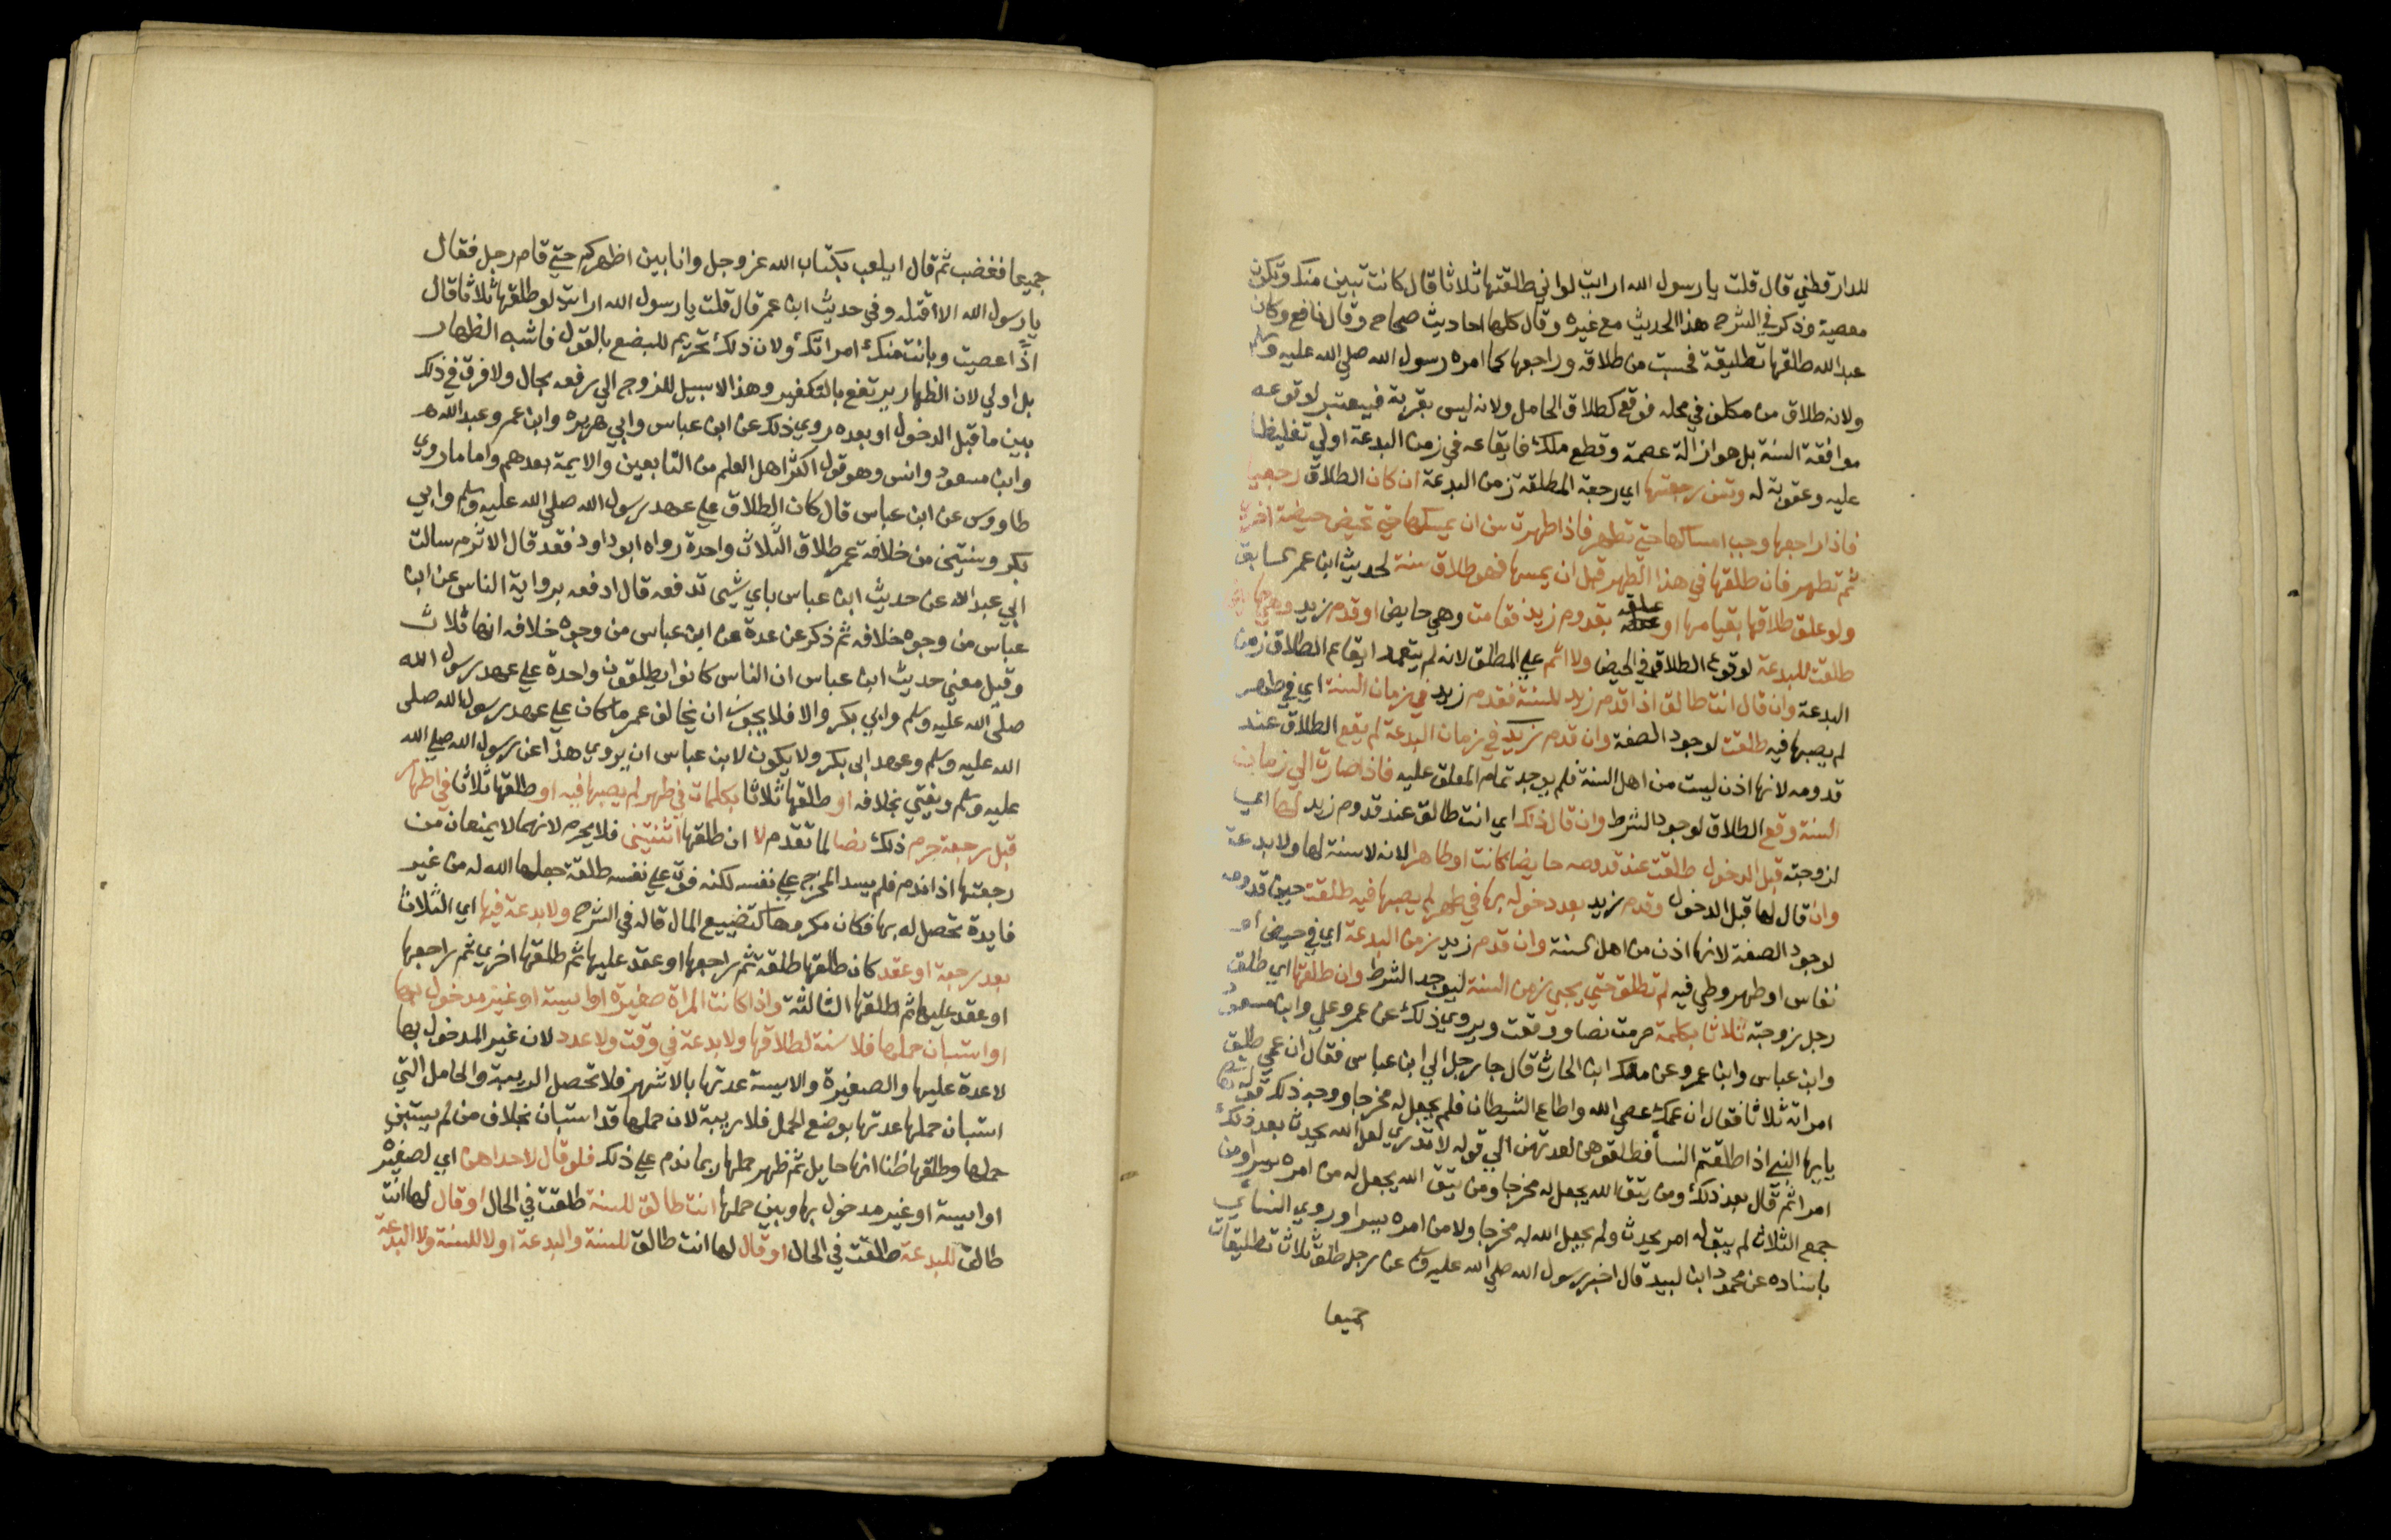 للدارقطني قال قلت يا رسول الله ارايت لو اني طلقتها ثلاثا قال كانت تبين منك وتكون
معصية وذكر في الشرح هذا الحديث مع غيره وقال كلها احاديث صحاح وقال نافع وكان
عبد الله طلقها تطليقة فحسبت من طلاقه وراجعها كما امره رسول الله صلي الله عليه وسلم
ولانه طلاق من مكلف في محله فوقع كطلاق الحامل ولانه ليس بقربة فيعتبر لوقوعه
موافقة السنة بل هو ازالة عصمة وقطع ملك فايقاعه في زمن البدعة اولي تغليظا
عليه وعقوبة له وتسن رجعتها اي رجعة المطلقة زمن البدعة ان كان الطلاق رجعيا
فاذا راجعها وجب امساكها حتي تطهر فاذا طهرت سن ان يمسكها حتي تحيض حيضة اخري
ثم تطهر فان طلقها في هذا الطهر قبل ان يمسها فهو طلاق سنة لحديث ابن عمر السابق
ولو علق طلاقها بقيامها او علقه بقدوم زيد فقامت وهي حايض او قدم زيد وهي حايض
طلقت للبدعة لوقوع الطلاق في الحيض ولا اثم علي المطلق لانه لم يتعمد ايقاع الطلاق زمن
البدعة وان قال انت طالق اذا قدم زيد للسنة فقدم زيد في زمان السنة اي في طهر
لم يصبها فيه طلقت لوجود الصفة وان قدم زيد في زمان البدعة لم يقع الطلاق عند
قدومه لانها اذن ليست من اهل السنة فلم يوجد تمام المعلق عليه فاذا صارت الي زمان
السنة وقع الطلاق لوجود الشرط وان قال ذلك اي انت طالق عند قدوم زيد لها اي
لزوجته قبل الدخول طلقت عند قدومه حايضا كانت او طاهرا لانه لا سنة لها ولا بدعة
وان قال لها قبل الدخول وقدم زيد بعد دخوله بها في طهر لم يصبها فيه طلقت حين قدومه
لوجود الصفة لانها اذن من اهل السنة وان قدم زيد زمن البدعة اي في حيض او
نفاس او طهر وطي فيه لم تطلق حتي يجي زمن السنة ليوجد الشرط وان طلقها اي طلق
رجل زوجته ثلاثا بكلمة حرمت نصا ووقعت ويروي ذلك عن عمر وعلي وابن مسعود
وابن عباس وابن عمر وعن مالك ابن الحارث قال جا رجل الي ابن عباس فقال ان عمي طلق
امراته ثلاثا فقال ان عمك عصي الله واطاع الشيطان فلم يجعل له مخرجا ووجه ذلك قوله تعالي
يايها النبي اذا طلقتم النسا فطلقوهن لعدتهن الي قوله لا تدري لعل الله يحدث بعد ذلك
امرا ثم قال بعد ذلك ومن يتق الله يجعل له مخرجا ومن يتق الله يجعل له من امره يسرا ومن
جمع الثلاث لم يبق له امر يحدث ولم يجعل الله له مخرجا ولا من امره يسرا وروي النسائي
باسناده عن محمود ابن لبيد قال اخبر رسول الله صلي الله عليه وسلم عن رجل طلق ثلاث تطليقات
جميعا
جميعا فغضب ثم قال ايلعب بكتاب الله عز وجل وانا بين اظهركم حتي قام رجل فقال
يا رسول الله الا اقتله وفي حديث ابن عمر قال قلت يا رسول الله ارايت لو طلقها ثلاثا قال
اذا عصيت وبانت منك امراتك ولان ذلك تحريم للبضع بالقول فاشبه الظهار
بل اولي لان الظهار يرتفع بالتكفير وهذا لا سبيل للزوج الي رفعه بحال ولا فرق في ذلك
بين ما قبل الدخول او بعده روي ذلك عن ابن عباس وابي هريرة وابن عمر وعبد الله
وابن مسعود وانس وهو قول اكثر اهل العلم من التابعين والايمة بعدهم واما ما روي
طاووس عن ابن عباس قال كان الطلاق علي عهد رسول الله صلي الله عليه وسلم وابي
بكر وسنتين من خلافة عمر طلاق الثلاث واحدة رواه ابو داود فقد قال الاثرم سالت
ابي عبد الله عن حديث ابن عباس باي شي تدفعه قال ادفعه برواية الناس عن ابن
عباس من وجوه خلافه ثم ذكر عن عدة عن ابن عباس من وجوه خلافه انها ثلاث
وقيل معني حديث ابن عباس ان الناس كانوا يطلقون واحدة علي عهد رسول الله
صلي الله عليه وسلم وابي بكر والا فلا يجوز ان يخالف عمر ما كان علي عهد رسول الله صلي
الله عليه وسلم وعهد ابي بكر ولا يكون لابن عباس ان يروي هذا عن رسول الله صلي الله
عليه وسلم ويفتي بخلافه او طلقها ثلاثا بكلمات في طهر لم يصبها فيه او طلقها ثلاثا في اطهار
قبل رجعة حرم ذلك نصا لما تقدم لا ان طلقها اثنتين فلا يحرم لانهما لا يمنعان من
رجعتها اذا ندم فلم يسد المخرج علي نفسه لكنه فوت علي نفسه طلقة جعلها الله له من غير
فايدة تحصل له بها فكان مكروها كتضييع المال قاله في الشرح ولا بدعة فيها اي الثلاث
بعد رجعة او عقد كان طلقها طلقة ثم راجعها او عقد عليها ثم طلقها اخري ثم راجعها
او عقد عليها ثم طلقها الثالثة واذا كانت المراة صغيرة او ايسة او غير مدخول بها
او استبان حملها فلا سنة لطلاقها ولا بدعة في وقت ولا عدد لان غير المدخول بها
لا عدة عليها والصغيرة والايسة عدتها بالاشهر فلا تحصل الريبة والحامل التي
استبان حملها عدتها بوضع الحمل فلا ريبة لان حملها قد استبان بخلاف من لم يستبن
حملها وطلقها ظنا انها حايل ثم ظهر حملها ربما ندم علي ذلك فلو قال لاحداهن اي لصغيرة
او ايسة او غير مدخول بها وبين حملها انت طالق للسنة طلقت في الحال او قال لها انت
طالق للبدعة طلقت في الحال او قال لها انت طالق للسنة والبدعة او لا للسنة ولا البدعة